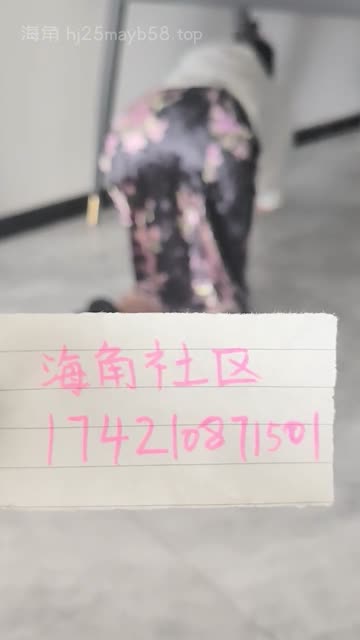 海角 hj25mayb58.top
海角社区
174210871501